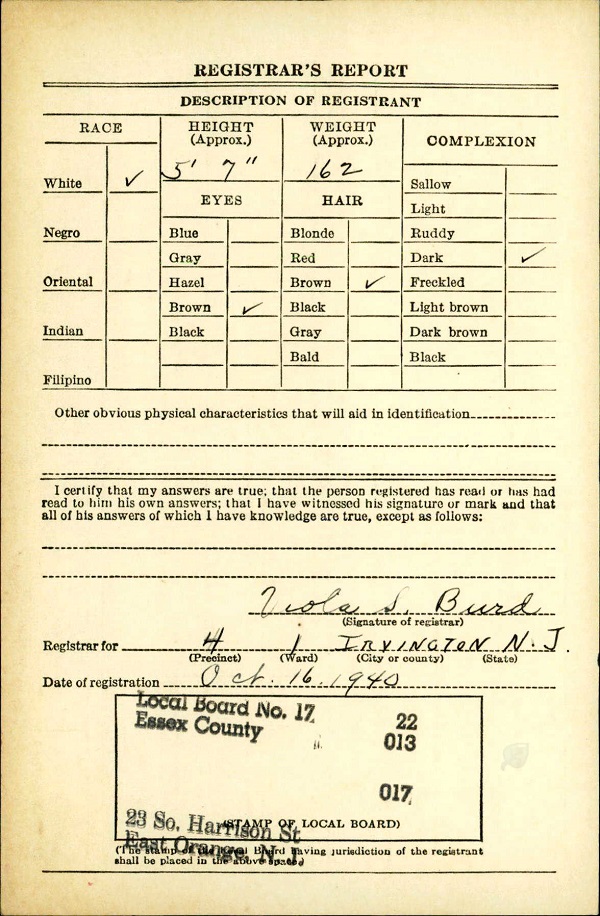 REGISTRAR'S REPORT
DESCRIPTION OF REGISTRANT
RACE
HEIGHT (Approx.)
WEIGHT (Approx.)
COMPLEXION
5' 7"
162
White ✓
Negro
Oriental
Indian
Filipino
EYES
Blue
Gray
Hazel
Brown ✓
Black
HAIR
Blonde
Red
Brown ✓
Black
Gray
Bald
Sallow
Light
Ruddy
Dark ✓
Freckled
Light brown
Dark brown
Black
Other obvious physical characteristics that will aid in identification
I certify that my answers are true; that the person registered has read or has had
read to him his own answers; that I have witnessed his signature or mark and that
all of his answers of which I have knowledge are true, except as follows:
Viola S. Burd
(Signature of registrar)
Registrar for 4 1 IRVINGTON N. J.
(Precinct) (Ward) (City or county) (State)
Date of registration Oct. 16. 1940
Local Board No. 17
Essex County
22
013
017
23 So. Harrison St
East Orange, N.J.
(STAMP OF LOCAL BOARD)
(The stamp of the Local Board having jurisdiction of the registrant
shall be placed in the above space.)